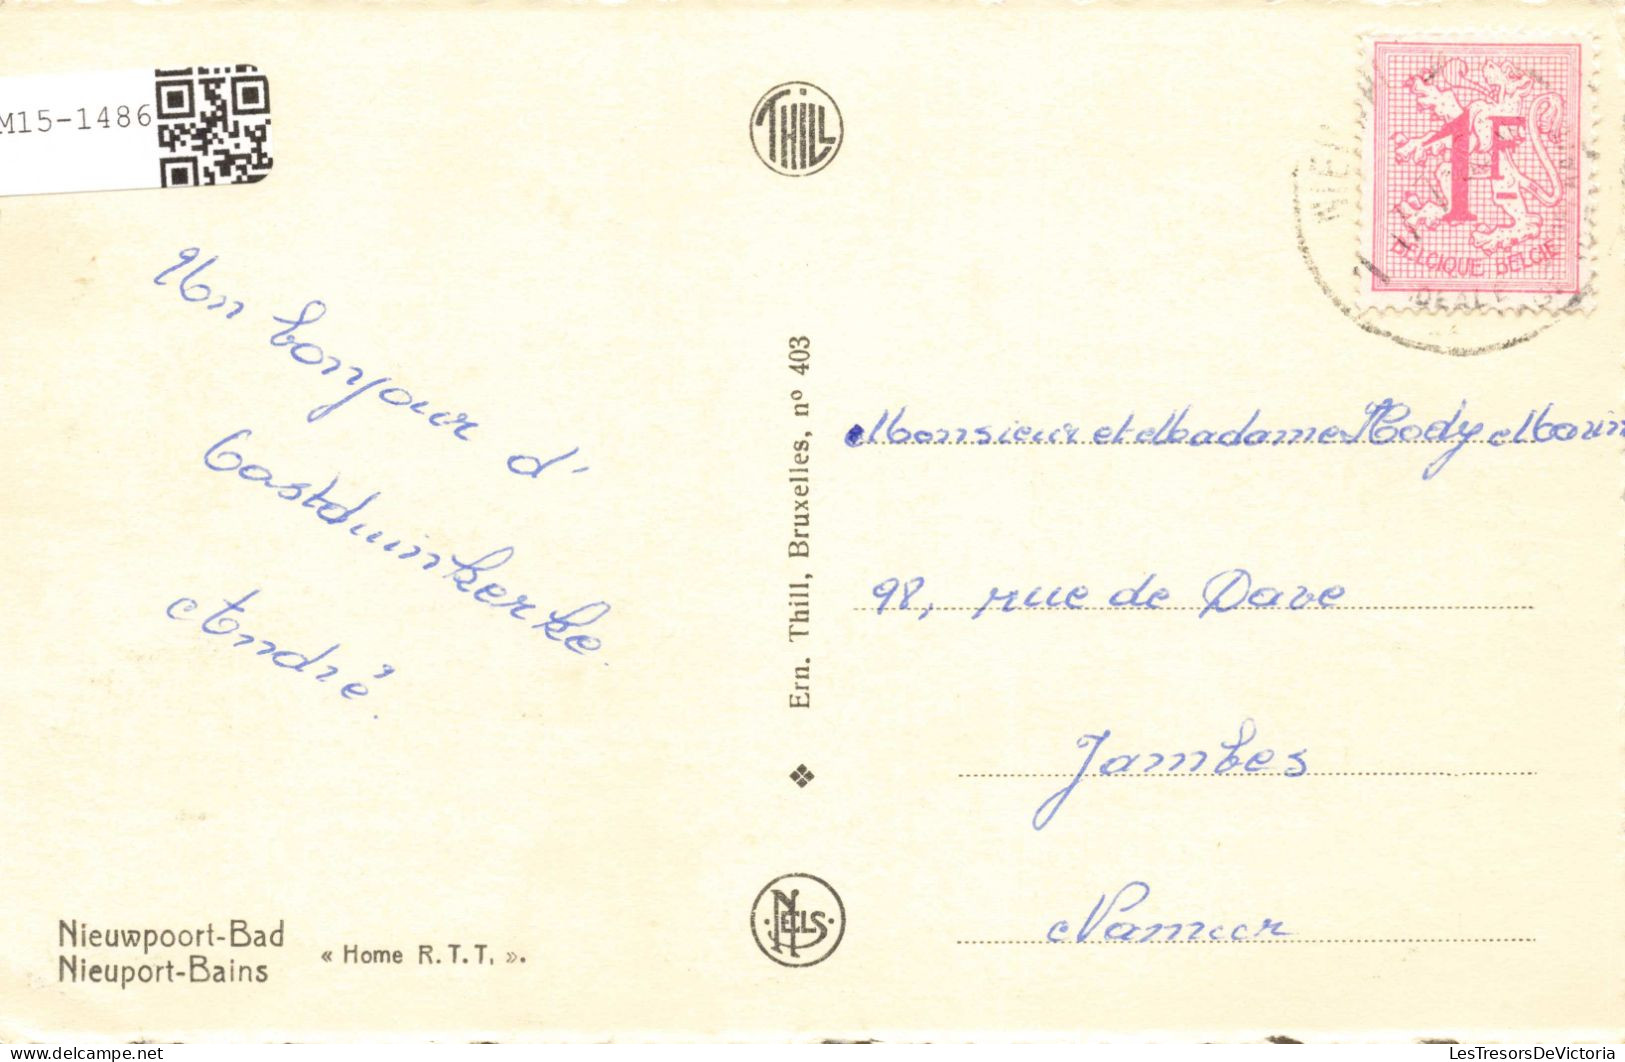 M15-1486
THILL
1F
BELGIQUE BELGIE
Un bonjour d'
Oostduinkerke.
André.
Ern. Thill, Bruxelles, nº 403
Monsieur et Madame Hody Morin
98, rue de Dave
Jambes
Namur
NELS
Nieuwpoort-Bad
Nieuport-Bains
« Home R.T.T. ».
LesTresorsDeVictoria